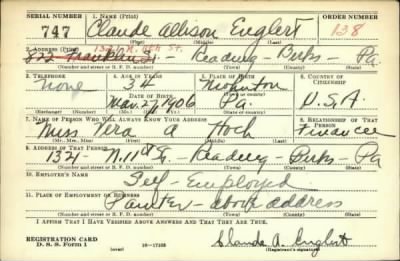 SERIAL NUMBER 1. NAME (Print) ORDER NUMBER
747 Claude Allison Englert 138
(First) (Middle) (Last)
1321 N. 11th St.
2. ADDRESS (Print)
822 Franklin St - Reading - Berks - Pa.
(Number and street or R. F. D. number) (Town) (County) (State)
3. TELEPHONE 4. AGE IN YEARS 5. PLACE OF BIRTH 6. COUNTRY OF CITIZENSHIP
None 34 Mohnton
DATE OF BIRTH (Town or county)
Mar. 27, 1906 Pa. U.S.A.
(Exchange) (Number) (Mo.) (Day) (Yr.) (State or country)
7. NAME OF PERSON WHO WILL ALWAYS KNOW YOUR ADDRESS 8. RELATIONSHIP OF THAT PERSON
Miss. Vera A Hoch Financee
(Mr., Mrs., Miss) (First) (Middle) (Last)
9. ADDRESS OF THAT PERSON
1321 - N. 11th St. - Reading - Berks - Pa
(Number and street or R. F. D. number) (Town) (County) (State)
10. EMPLOYER'S NAME
Self - Employed
11. PLACE OF EMPLOYMENT OR BUSINESS
Painter - above address
(Number and street or R. F. D. number) (Town) (County) (State)
I AFFIRM THAT I HAVE VERIFIED ABOVE ANSWERS AND THAT THEY ARE TRUE.
REGISTRATION CARD
D. S. S. Form 1 (over) 16-17105 Claude A. Englert
(Registrant's signature)